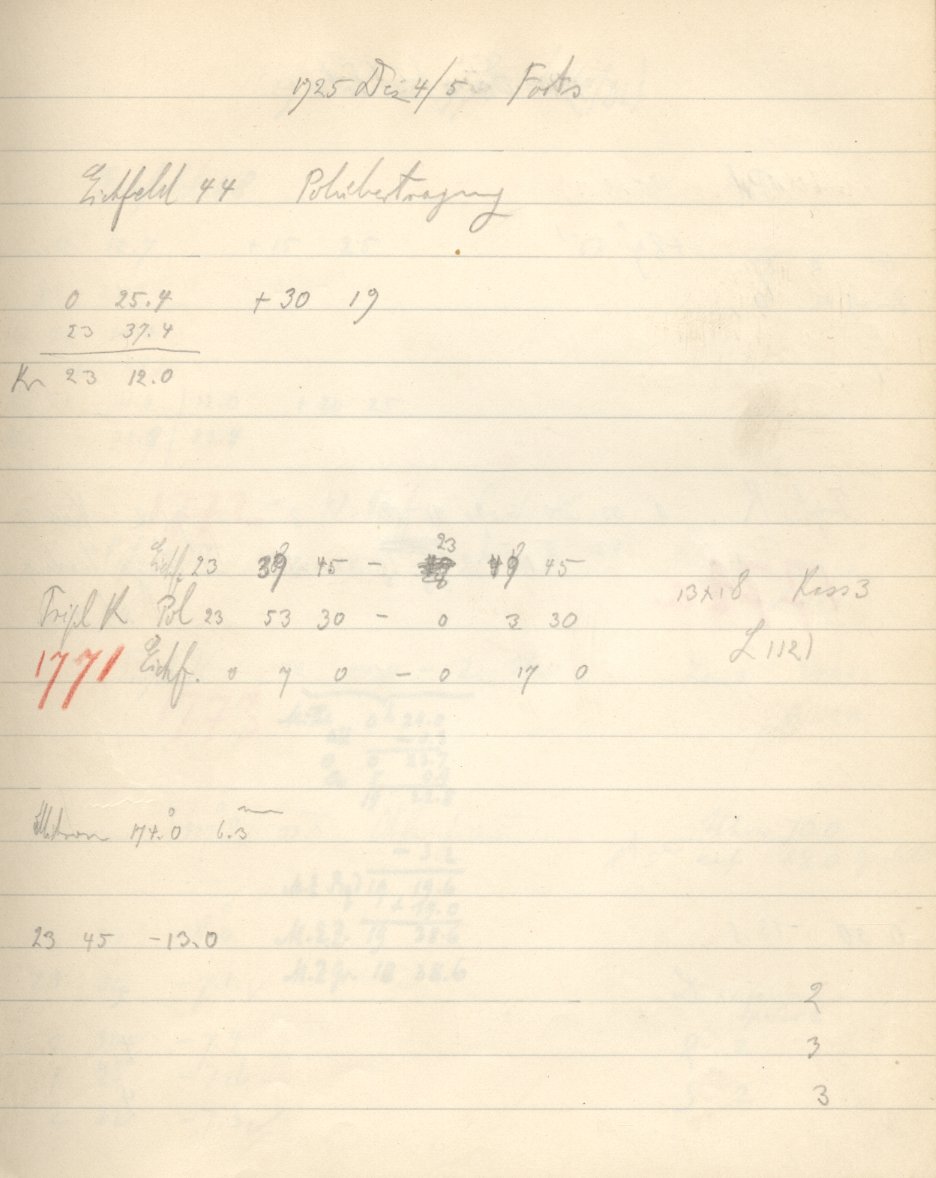 1925 Dez 4/5 Fotos
Eichfeld 44 Polübertragung
0 25.4 + 30 19
23 37.4
Kr 23 12.0
23
Eichf. 23 39 45 - 49 45
Tripl K Pol 23 53 30 - 0 3 30 13x18 Kass 3
1771 Eichf. 0 7 0 - 0 17 0 L 112)
174.0° 6.3
23 45 -13.0
2
3
3